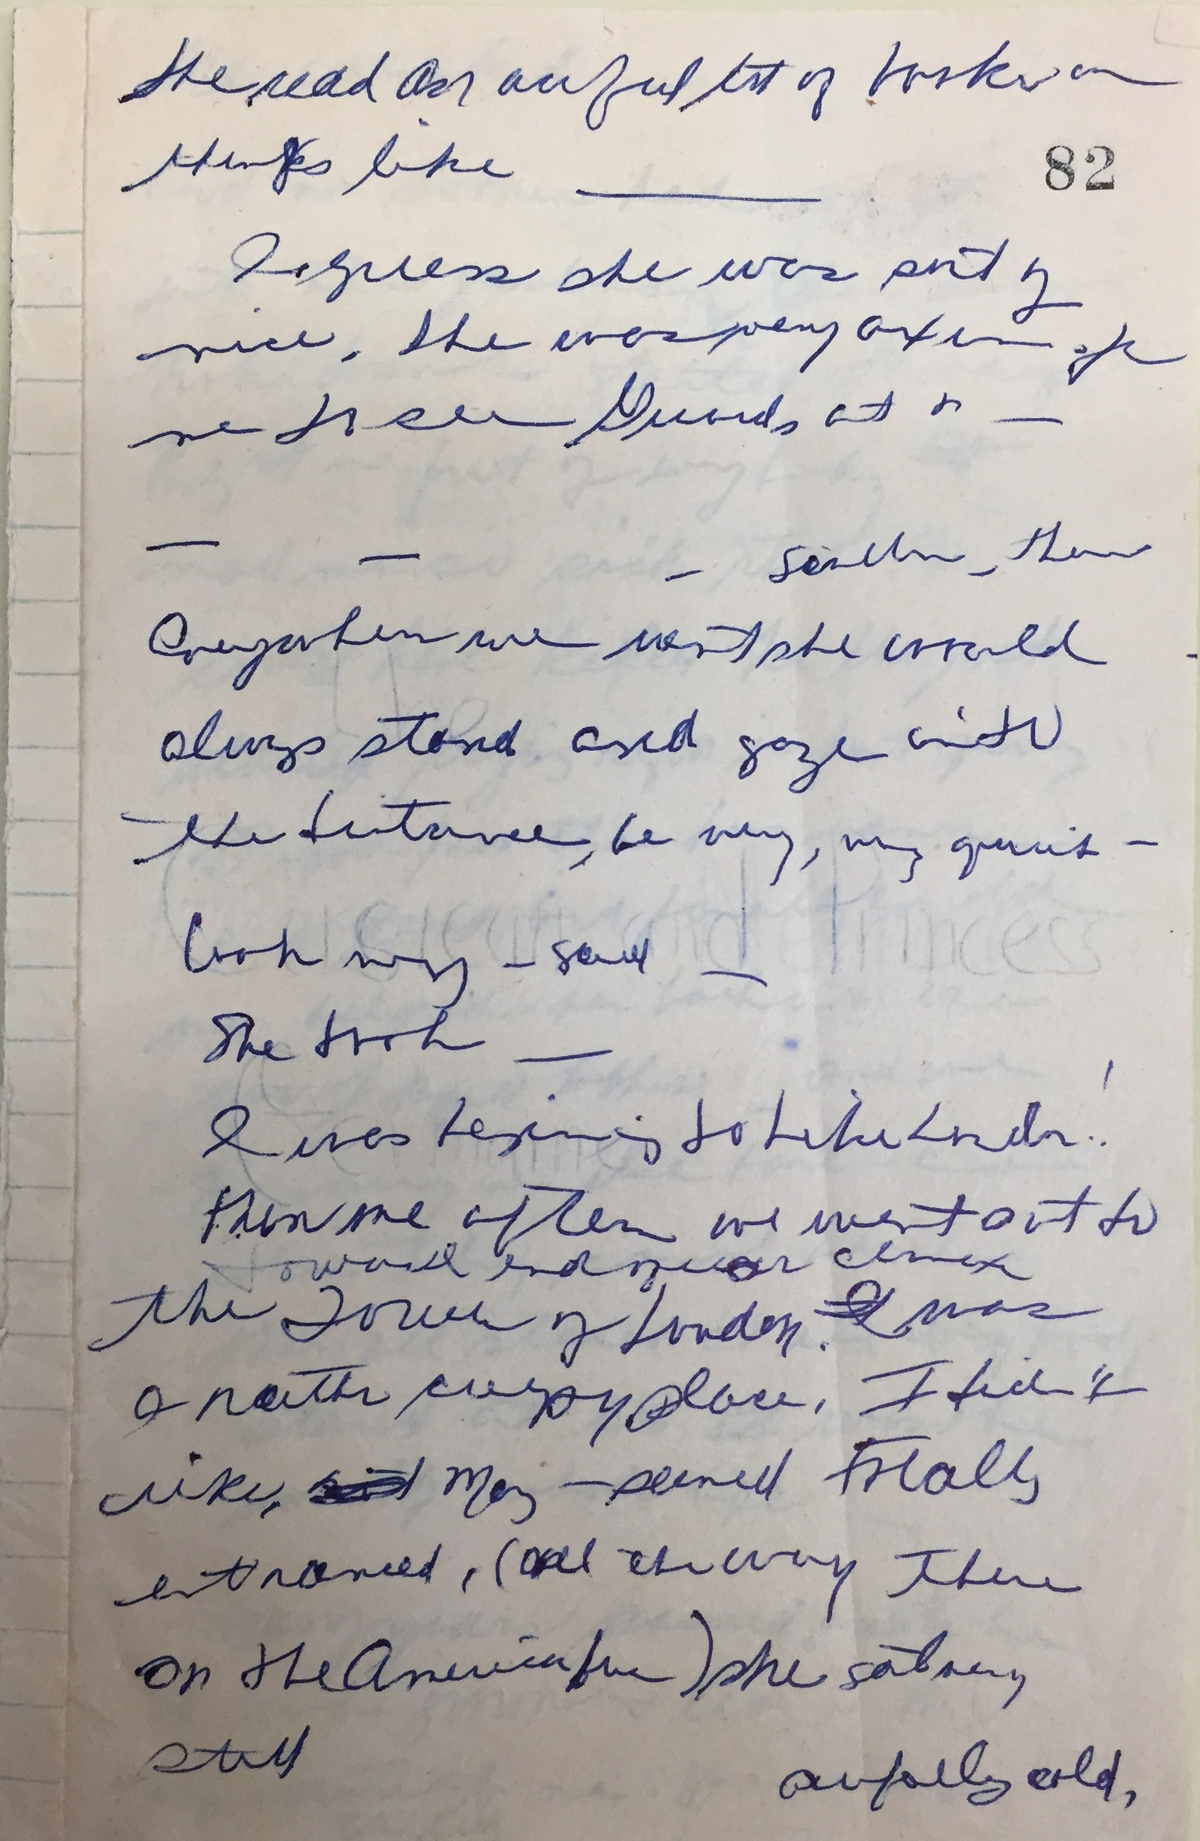 She read an awful lot of books on
things like ______
82
I guess she was sort of
nice, She was very anxious for
me to see Guards at —
— — — then
Everywhere we went she would
always stand and gaze into
the distance, be very, very quiet —
Look — said —
She took —
I was begining to like London!
Then one aften we went out to
Toward end near climax
the Tower of London. It was
a rather creepy place. I didn't
like, May — seemed totally
entranced, (all the way there
on the ) she sat very
still
awfully cold,